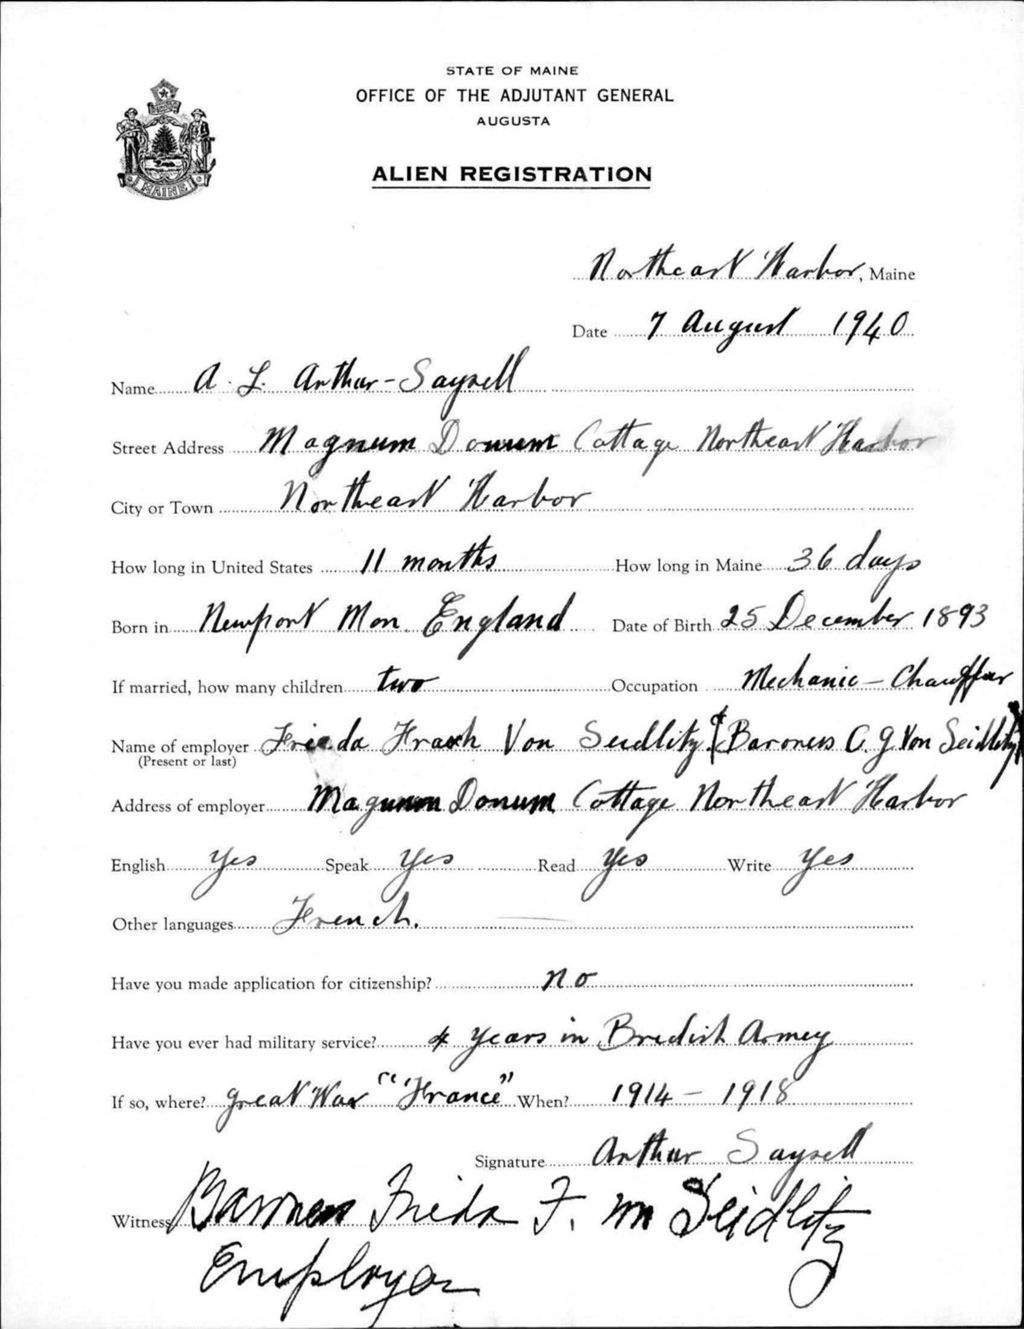 STATE OF MAINE
OFFICE OF THE ADJUTANT GENERAL
AUGUSTA
ALIEN REGISTRATION
MAINE
Northeast Harbor, Maine
Date 7 August 1940
Name A. L. Arthur-Saysell
Street Address Magnum Donum Cottage Northeast Harbor
City or Town Northeast Harbor
How long in United States 11 months How long in Maine 36 days
Born in Newport Mon. England Date of Birth 25 December 1893
If married, how many children two Occupation Mechanic - Chauffeur
Name of employer Frieda Frasch Von Seidlitz (Baroness C. G. Von Seidlitz)
(Present or last)
Address of employer Magnum Donum Cottage Northeast Harbor
English Yes Speak Yes Read Yes Write Yes
Other languages French.
Have you made application for citizenship? No
Have you ever had military service? 4 years in Bredish Armey
If so, where? Great War "France" When? 1914 - 1918
Signature Arthur Saysell
Witness Baroness Frieda F. von Seidlitz
Employer